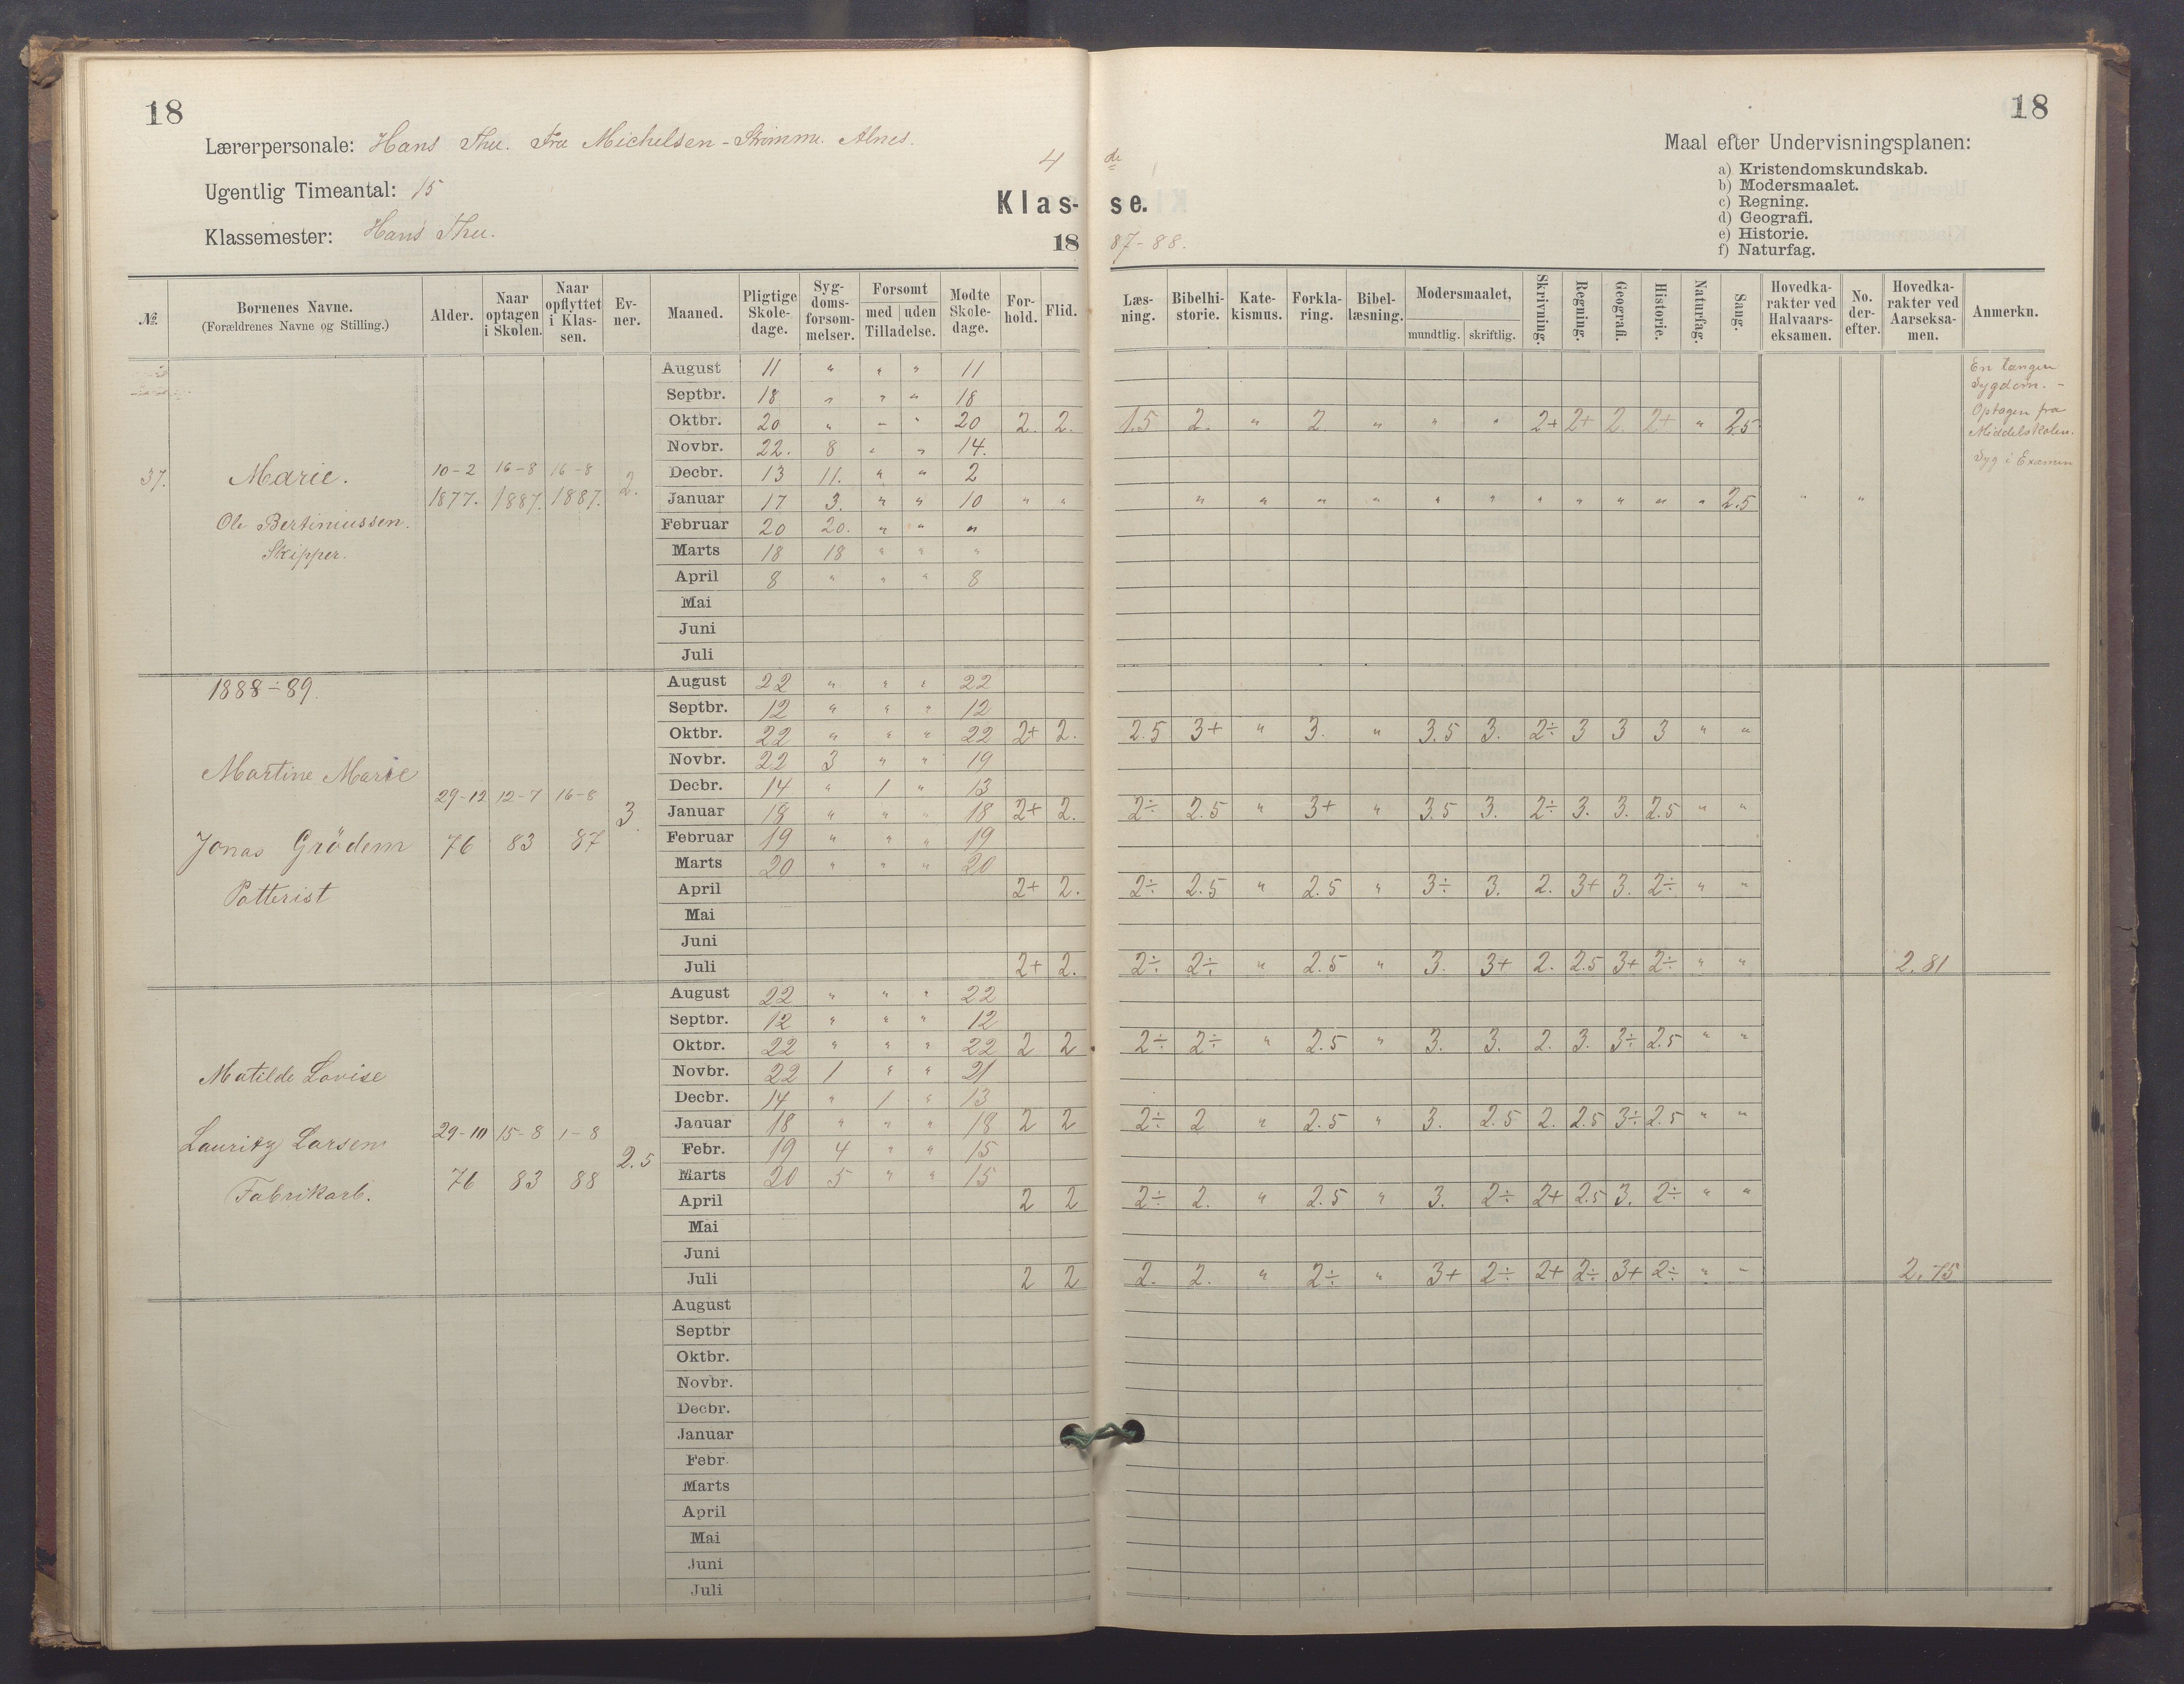 18
18
Lærerpersonale: Hans Thu. Fra Michelsen - Strømme. Alnes.
Ugentlig Timeantal: 15
Klassemester: Hans Thu.
4 de
Klas-se.
1887-88.
Maal efter Undervisningsplanen:
a) Kristendomskundskab.
b) Modersmaalet.
c) Regning.
d) Geografi.
e) Historie.
f) Naturfag.
№. Børnenes Navne. (Forældrenes Navne og Stilling.) Alder. Naar optagen i Skolen. Naar opflyttet i Klas-sen. Ev-ner. Maaned. Pligtige Skole-dage. Syg-doms-forsøm-melser. Forsømt med uden Tilladelse. Mødte Skole-dage. For-hold. Flid. Læs-ning. Bibelhi-storie. Kate-kismus. Forkla-ring. Bibel-læsning. Modersmaalet, mundtlig. skriftlig. Skrivning. Regning. Geografi. Historie. Naturfag. Sang. Hovedka-rakter ved Halvaars-eksamen. No. der-efter. Hovedka-rakter ved Aarseksa-men. Anmerkn.
37. Marie.
Ole Bertiniussen.
Skipper.
10-2 1877. 16-8 1887. 16-8 1887. 2.
August 11 " " " 11
Septbr. 18 " " " 18
Oktbr. 20 " - " 20 2. 2. 1.5 2. " 2 " " " 2+ 2+ 2. 2+ " 2.5
Novbr. 22. 8 " " 14.
Decbr. 13 11. " " 2
Januar 17 3. " " 10 " " " " " " " " " " " " " 2.5 " "
Februar 20 20. " " "
Marts 18 18 " " "
April 8 " " " 8
Mai
Juni
Juli
En længere
Sygdom. -
Optagen fra
Middelskolen.
Syg i Examen
1888-89.
Martine Marie
Jonas Grödem
Potterist
29-12 76 12-7 83 16-8 87 3.
August 22 " " " 22
Septbr. 12 " " " 12
Oktbr. 22 " " " 22 2+ 2. 2.5 3+ " 3. " 3.5 3. 2÷ 3 3 3 " "
Novbr. 22 3 " " 19
Decbr. 14 " 1 " 13
Januar 18 " " " 18 2+ 2. 2÷ 2.5 " 3+ " 3.5 3. 2÷ 3. 3. 2.5 " "
Februar 19 " " " 19
Marts 20 " " " 20
April 2+ 2. 2÷ 2.5 " 2.5 " 3÷ 3. 2. 3+ 3. 2÷ " "
Mai
Juni
Juli 2+ 2. 2÷ 2÷ " 2.5 " 3. 3+ 2. 2.5 3+ 2÷ " " 2.81
Matilde Lovise
Lauritz Larsen
Fabrikarb.
29-10 76 15-8 83 1-8 88 2.5
August 22 " " " 22
Septbr. 12 " " " 12
Oktbr. 22 " " " 22 2 2 2÷ 2÷ " 2.5 " 3. 3. 2. 3. 3÷ 2.5 " "
Novbr. 22 1 " " 21
Decbr. 14 " 1 " 13
Januar 18 " " " 18 2 2 2÷ 2 " 2.5 " 3. 2.5 2. 2.5 3÷ 2.5 " "
Febr. 19 4 " " 15
Marts 20 5 " " 15
April 2 2 2÷ 2. " 2.5 " 3. 2÷ 2+ 2.5 3. 2÷ " "
Mai
Juni
Juli 2 2 2. 2. " 2÷ " 3+ 2÷ 2+ 2÷ 3+ 2÷ " - 2.75
August
Septbr
Oktbr.
Novbr.
Decbr.
Januar
Febr.
Marts
April
Mai
Juni
Juli